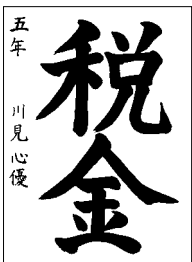 税金
五年 川見心優